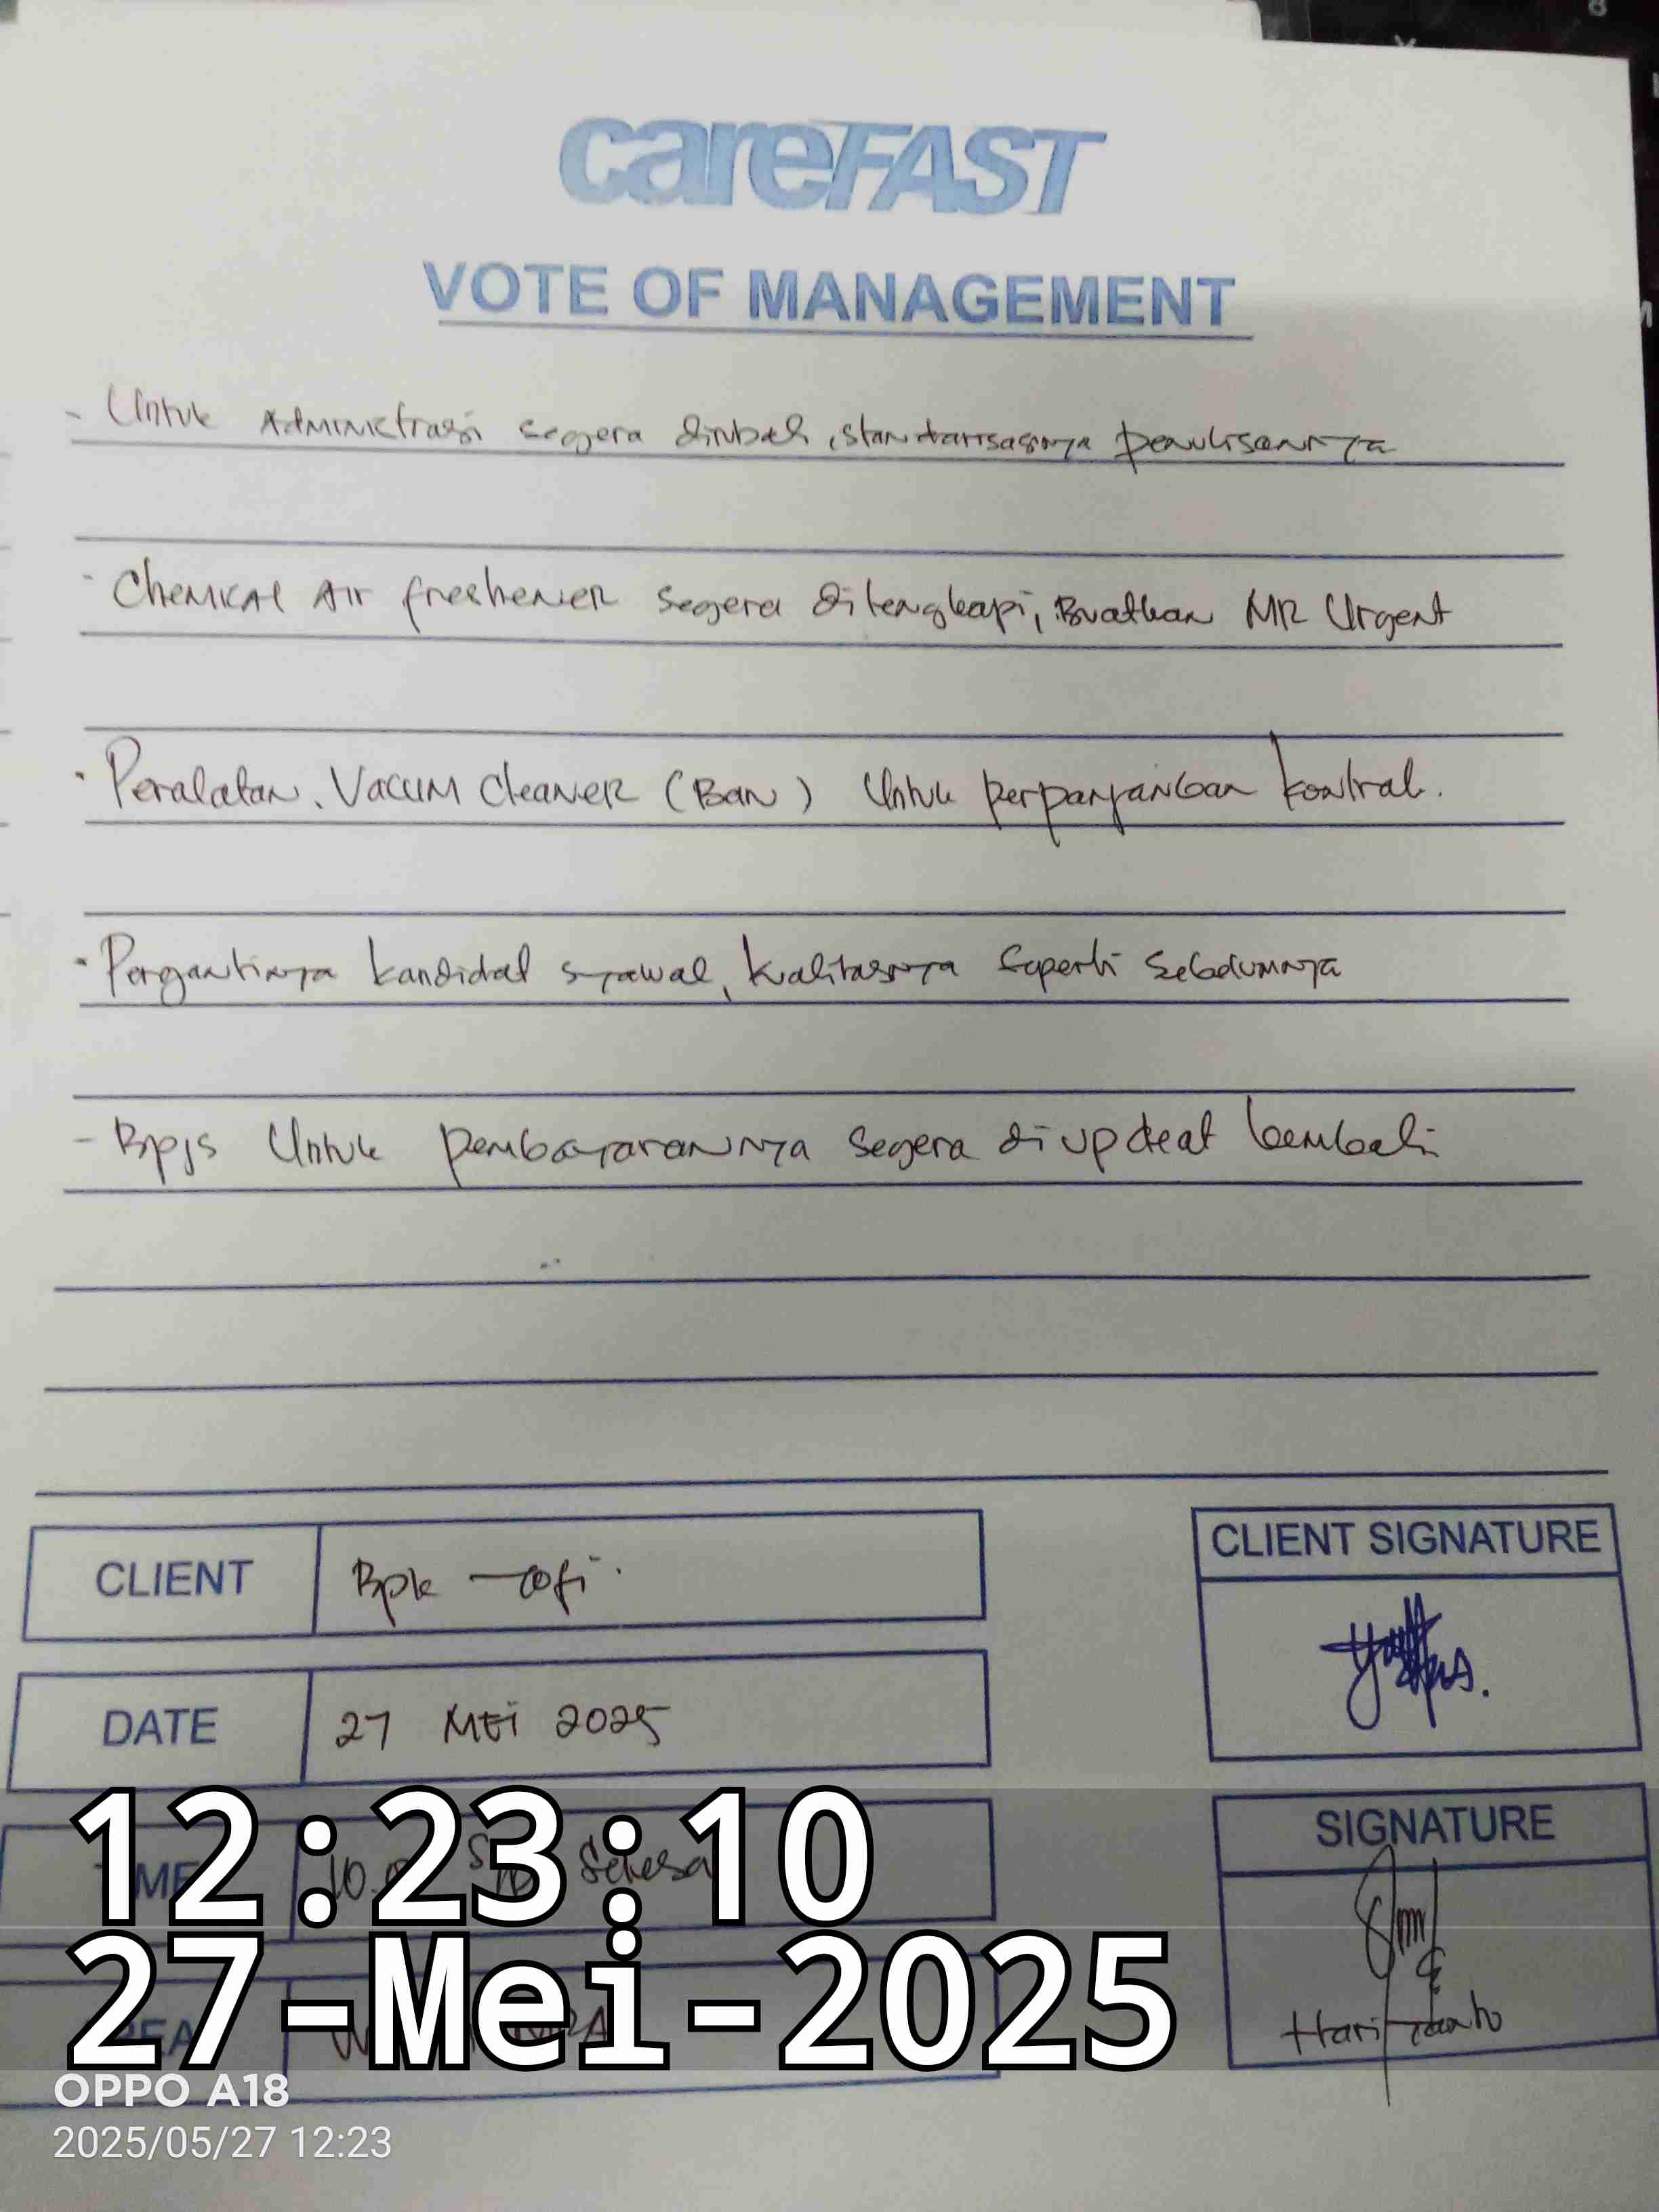 careFAST
VOTE OF MANAGEMENT
- Untuk Administrasi segera dirubah, standarisasinya penulisannya
- Chemical Air freshener segera dilengkapi, Buatkan MR Urgent
- Peralatan. Vacum Cleaner (Ban) Untuk perpanjangan kontrak.
- Pergantinya kandidat syawal, kualitasnya seperti sebelumnya
- Bpjs Untuk pembayarannya segera di updeat kembali
CLIENT Bpk
CLIENT SIGNATURE
DATE 27 MEI 2025
SIGNATURE
Hariyanto
12:23:10
27-Mei-2025
OPPO A18
2025/05/27 12:23